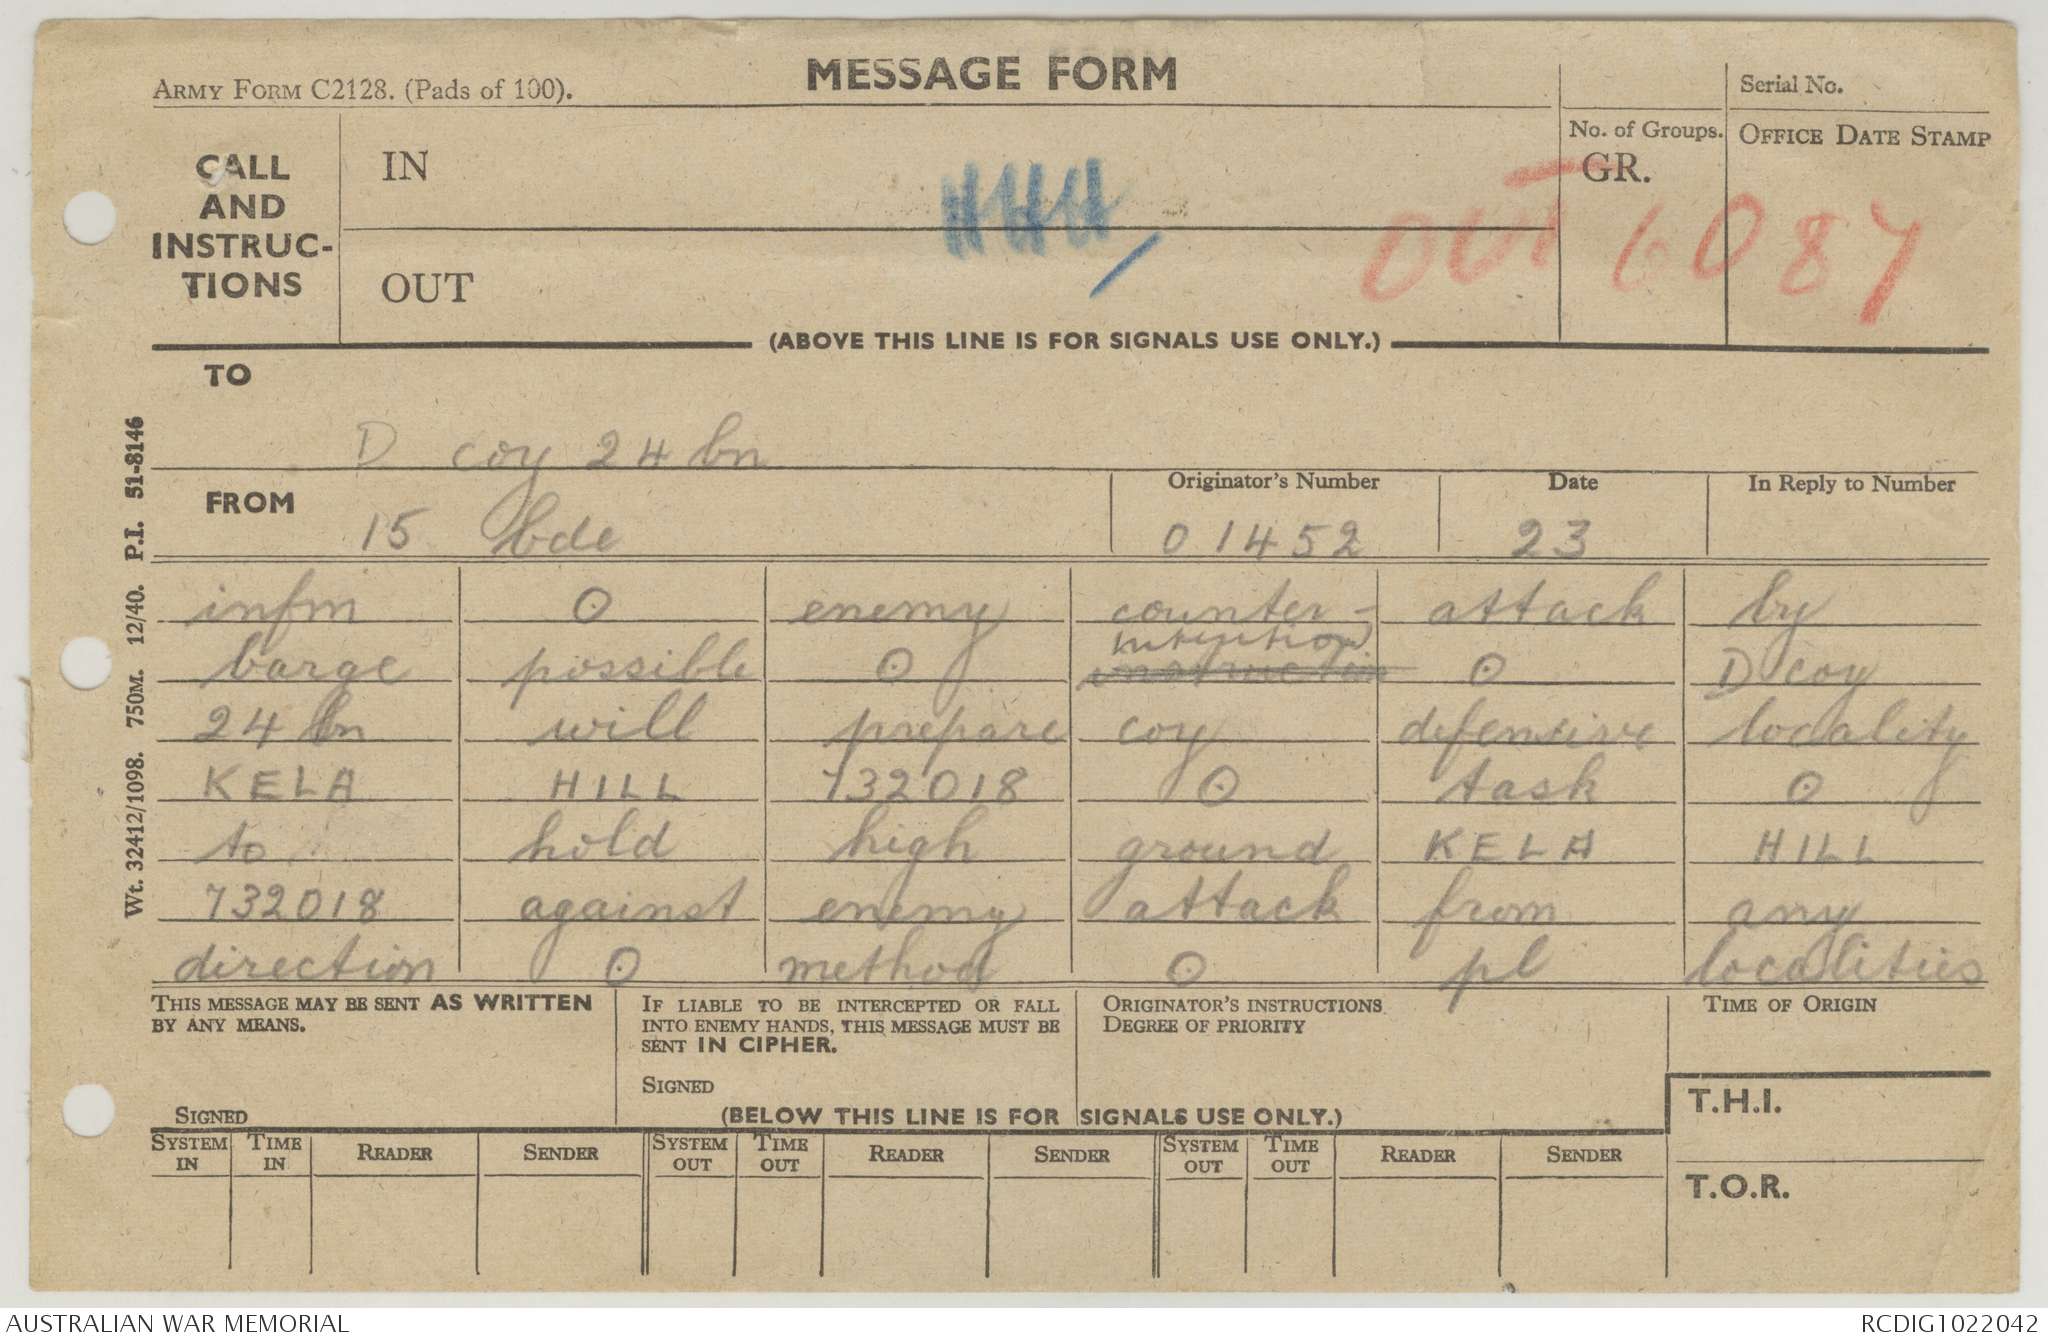 MESSAGE FORM
ARMY FORM C2128. (Pads of 100).
Serial No.
CALL AND INSTRUC-TIONS
IN
No. of Groups.
GR.
OFFICE DATE STAMP
OUT 6087
OUT
(ABOVE THIS LINE IS FOR SIGNALS USE ONLY.)
TO
D coy 24 bn
FROM
15 bde
Originator's Number
01452
Date
23
In Reply to Number
infm O enemy counter- attack by
intention
barge possible O instruction O D coy
24 bn will prepare coy defensive locality
KELA HILL 732018 O task O
to hold high ground KELA HILL
732018 against enemy attack from any
direction O method O pl localities
THIS MESSAGE MAY BE SENT AS WRITTEN
BY ANY MEANS.
SIGNED
IF LIABLE TO BE INTERCEPTED OR FALL
INTO ENEMY HANDS, THIS MESSAGE MUST BE
SENT IN CIPHER.
SIGNED
ORIGINATOR'S INSTRUCTIONS
DEGREE OF PRIORITY
TIME OF ORIGIN
(BELOW THIS LINE IS FOR SIGNALS USE ONLY.)
T.H.I.
SYSTEM IN TIME IN READER SENDER SYSTEM OUT TIME OUT READER SENDER SYSTEM OUT TIME OUT READER SENDER
T.O.R.
Wt. 32412/1098. 750M. 12/40. P.I. 51-8146
AUSTRALIAN WAR MEMORIAL
RCDIG1022042